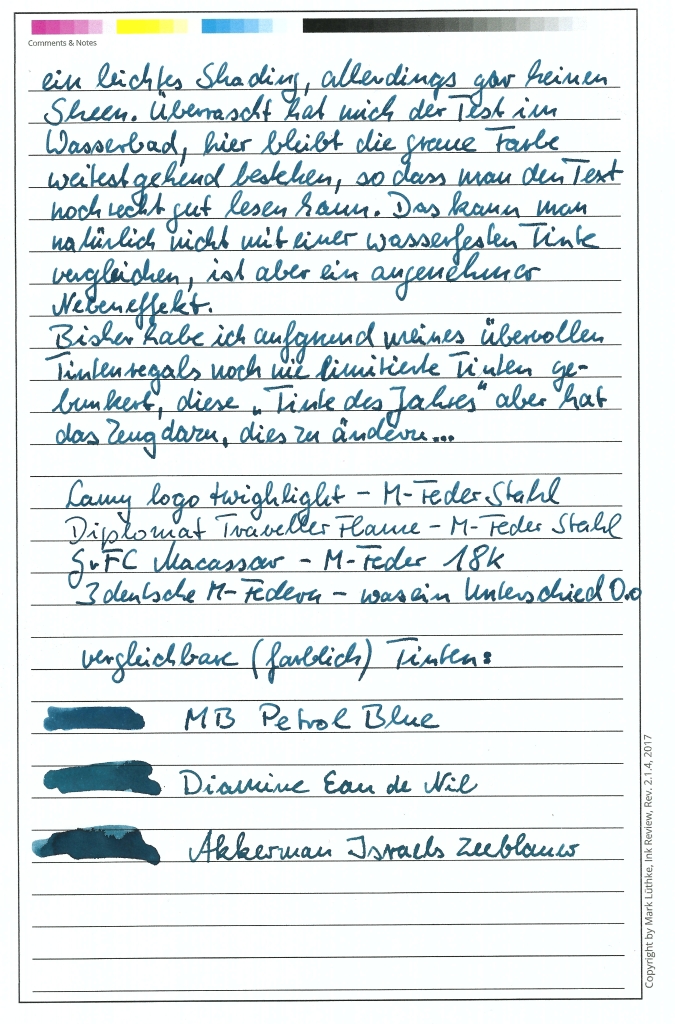 Comments & Notes
ein leichtes Shading, allerdings gar keinen
Sheen. Überrascht hat mich der Test im
Wasserbad, hier bleibt die graue Farbe
weitestgehend bestehen, so dass man den Text
noch recht gut lesen kann. Das kann man
natürlich nicht mit einer wasserfesten Tinte
vergleichen, ist aber ein angenehmer
Nebeneffekt.
Bisher habe ich aufgrund meines übervollen
Tintenregals noch nie limitierte Tinten ge-
bunkert, diese „Tinte des Jahres" aber hat
das Zeug dazu, dies zu ändern...
Lamy logo twighlight - M-Feder Stahl
Diplomat Traveller Flame - M-Feder Stahl
GvFC Macassar - M-Feder 18K
3 deutsche M-Federn - was ein Unterschied O.o
vergleichbare (farblich) Tinten:
MB Petrol Blue
Diamine Eau de Nil
Akkerman Israels Zeeblauw
Copyright by Mark Lüthke, Ink Review, Rev. 2.1.4, 2017